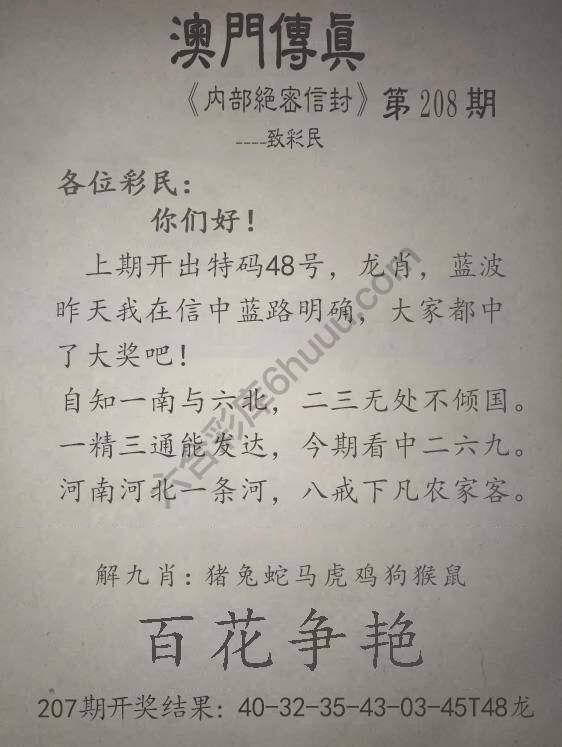 澳門傳眞
《内部絕密信封》第208期
----致彩民
各位彩民：
你们好！
上期开出特码48号，龙肖，蓝波
昨天我在信中蓝路明确，大家都中
了大奖吧！
自知一南与六北，二三无处不倾国。
一精三通能发达，今期看中二六九。
河南河北一条河，八戒下凡农家客。
解九肖：猪兔蛇马虎鸡狗猴鼠
百花争艳
207期开奖结果：40-32-35-43-03-45T48龙
六合彩库6huuu.com